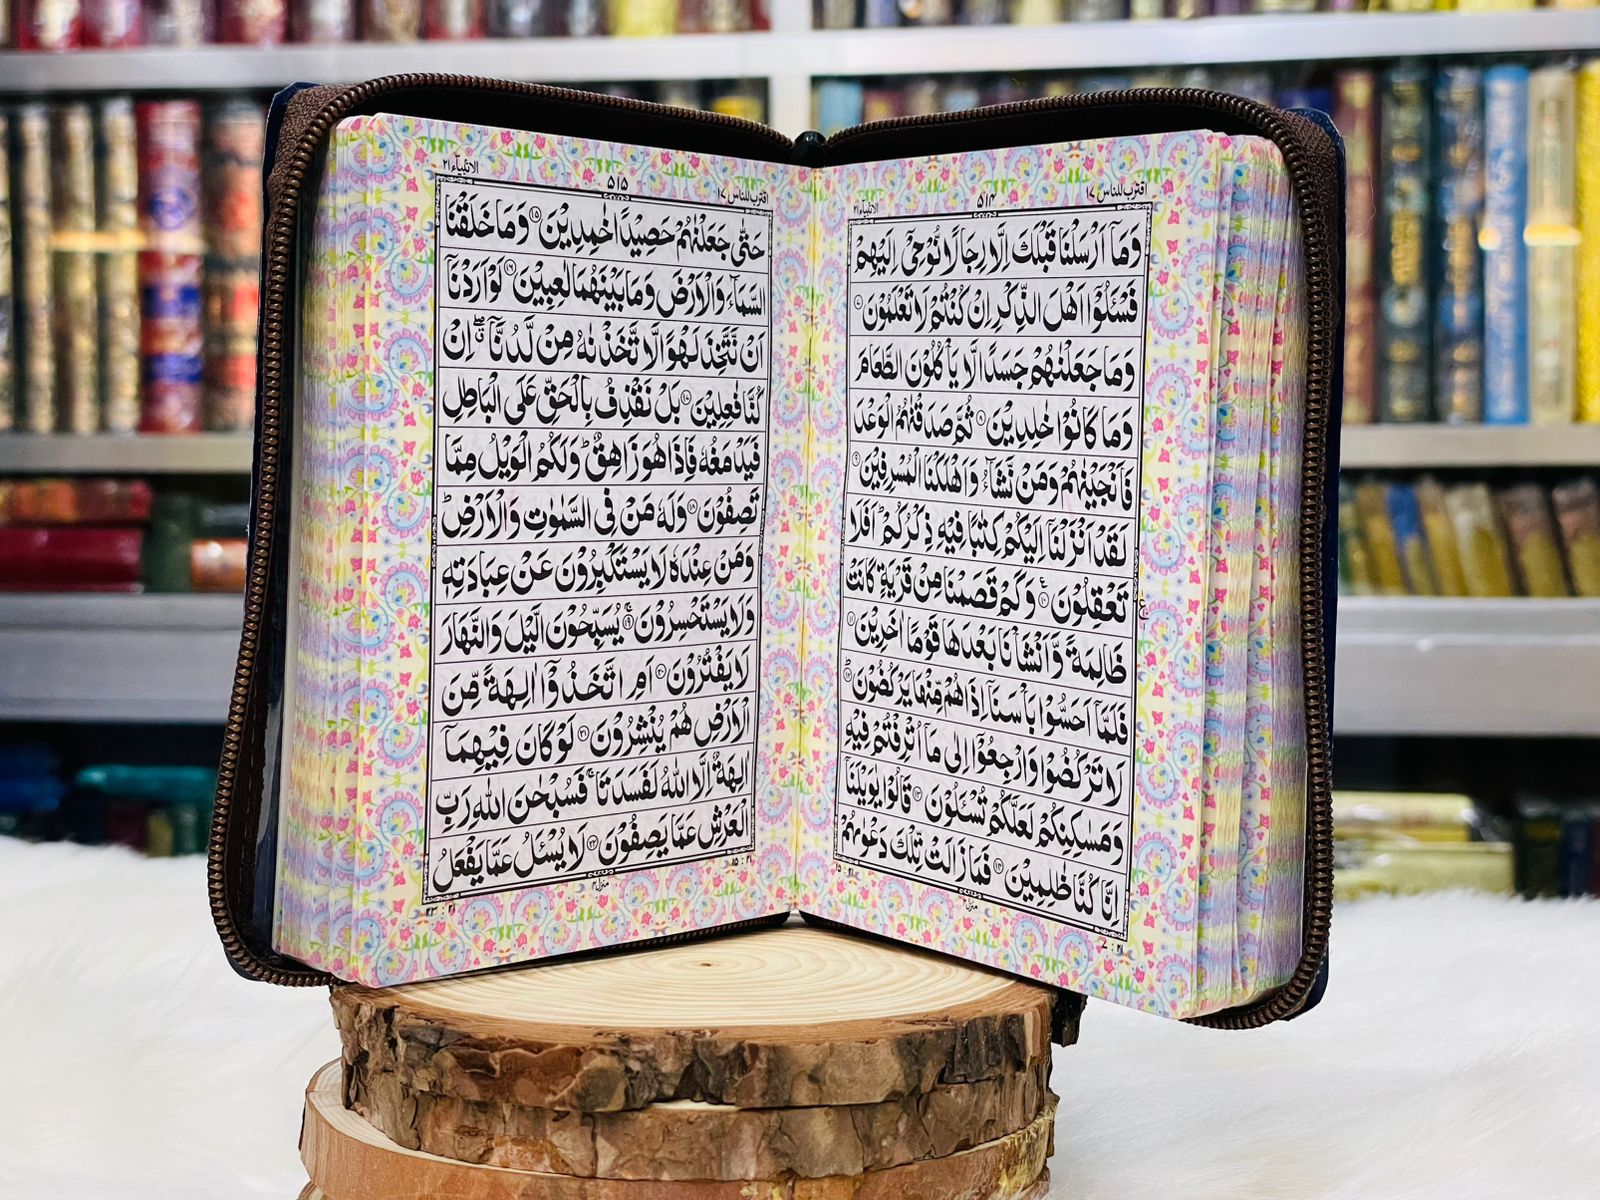 اقترب للناس ١٧
٥١٤
الانبیآء ٢١
وَمَاۤ اَرۡسَلۡنَا قَبۡلَكَ اِلَّا رِجَالًا نُّوۡحِىۡۤ اِلَيۡهِمۡ
فَسۡئَلُوۡۤا اَهۡلَ الذِّكۡرِ اِنۡ كُنۡتُمۡ لَا تَعۡلَمُوۡنَ ٧
وَمَا جَعَلۡنٰهُمۡ جَسَدًا لَّا يَاۡكُلُوۡنَ الطَّعَامَ
وَمَا كَانُوۡا خٰلِدِيۡنَ ٨ ثُمَّ صَدَقۡنٰهُمُ الۡوَعۡدَ
فَاَنۡجَيۡنٰهُمۡ وَمَنۡ نَّشَآءُ وَاَهۡلَكۡنَا الۡمُسۡرِفِيۡنَ ٩
لَقَدۡ اَنۡزَلۡنَاۤ اِلَيۡكُمۡ كِتٰبًا فِيۡهِ ذِكۡرُكُمۡ ؕ اَفَلَا
تَعۡقِلُوۡنَ ١٠ وَكَمۡ قَصَمۡنَا مِنۡ قَرۡيَةٍ كَانَتۡ
ظَالِمَةً وَّاَنۡشَاۡنَا بَعۡدَهَا قَوۡمًا اٰخَرِيۡنَ ١١
فَلَمَّاۤ اَحَسُّوۡا بَاۡسَنَاۤ اِذَا هُمۡ مِّنۡهَا يَرۡكُضُوۡنَ ١٢
لَا تَرۡكُضُوۡا وَارۡجِعُوۡۤا اِلٰى مَاۤ اُتۡرِفۡتُمۡ فِيۡهِ
وَمَسٰكِنِكُمۡ لَعَلَّكُمۡ تُسۡئَلُوۡنَ ١٣ قَالُوۡا يٰوَيۡلَنَاۤ
اِنَّا كُنَّا ظٰلِمِيۡنَ ١٤ فَمَا زَالَتۡ تِّلۡكَ دَعۡوٰىهُمۡ
ع
منزل ٤
٢١ : ٧
٢١ : ١٥
اقترب للناس ١٧
٥١٥
الانبیآء ٢١
حَتّٰى جَعَلۡنٰهُمۡ حَصِيۡدًا خٰمِدِيۡنَ ١٥ وَمَا خَلَقۡنَا
السَّمَآءَ وَالۡاَرۡضَ وَمَا بَيۡنَهُمَا لٰعِبِيۡنَ ١٦ لَوۡ اَرَدۡنَاۤ
اَنۡ نَّتَّخِذَ لَهۡوًا لَّاتَّخَذۡنٰهُ مِنۡ لَّدُنَّاۤ اِنۡ
كُنَّا فٰعِلِيۡنَ ١٧ بَلۡ نَقۡذِفُ بِالۡحَقِّ عَلَى الۡبَاطِلِ
فَيَدۡمَغُهٗ فَاِذَا هُوَ زَاهِقٌ ؕ وَلَكُمُ الۡوَيۡلُ مِمَّا
تَصِفُوۡنَ ١٨ وَلَهٗ مَنۡ فِى السَّمٰوٰتِ وَالۡاَرۡضِ ؕ
وَمَنۡ عِنۡدَهٗ لَا يَسۡتَكۡبِرُوۡنَ عَنۡ عِبَادَتِهٖ
وَلَا يَسۡتَحۡسِرُوۡنَ ١٩ يُسَبِّحُوۡنَ الَّيۡلَ وَالنَّهَارَ
لَا يَفۡتُرُوۡنَ ٢٠ اَمِ اتَّخَذُوۡۤا اٰلِهَةً مِّنَ
الۡاَرۡضِ هُمۡ يُنۡشِرُوۡنَ ٢١ لَوۡ كَانَ فِيۡهِمَاۤ
اٰلِهَةٌ اِلَّا اللّٰهُ لَفَسَدَتَا ۚ فَسُبۡحٰنَ اللّٰهِ رَبِّ
الۡعَرۡشِ عَمَّا يَصِفُوۡنَ ٢٢ لَا يُسۡئَلُ عَمَّا يَفۡعَلُ
منزل ٤
٢١ : ١٥
٢١ : ٢٣